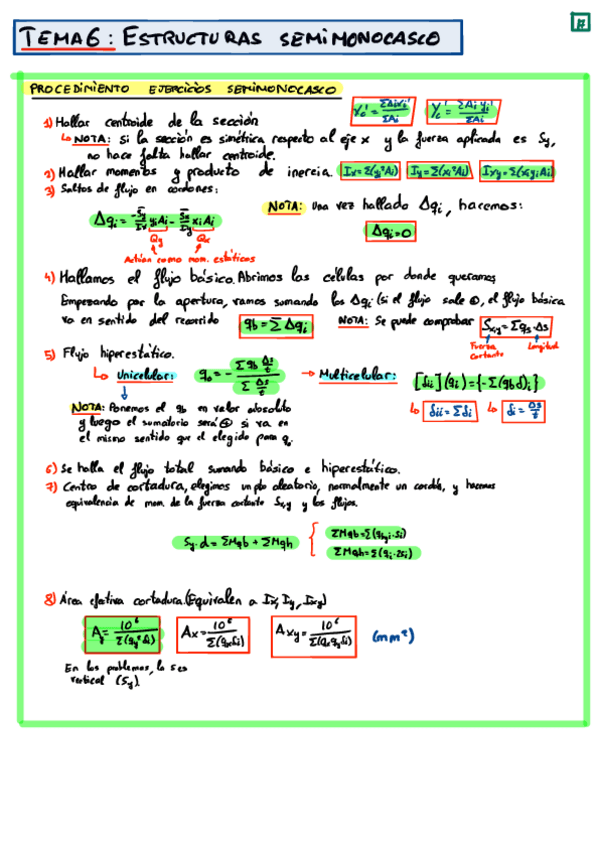 TEMA 6: ESTRUCTURAS SEMIMONOCASCO
PROCEDIMIENTO EJERCICIOS SEMIMONOCASCO
1) Hallar centroide de la sección
Xc' = ΣAixi' / ΣAi
Yc' = ΣAi yi' / ΣAi
↳ NOTA: Si la sección es simétrica respecto al eje x y la fuerza aplicada es Sy,
no hace falta hallar centroide.
2) Hallar momentos y producto de inercia. Ix = Σ(yi²Ai) Iy = Σ(xi²Ai) Ixy = Σ(xiyiAi)
3) Saltos de flujo en cordones:
NOTA: Una vez hallado Δqi, hacemos:
Δqi = -Sy/Ix yiAi - Sx/Iy xiAi
Δqi = 0
Qy Qx
Actúan como mom. estáticos
4) Hallamos el flujo básico. Abrimos las células por donde queramos.
Empezando por la apertura, vamos sumando los Δqi (si el flujo sale ⊕, el flujo básico
va en sentido del recorrido qb = ΣΔqi NOTA: Se puede comprobar Sx,y = Σqs·Δs
Fuerza cortante Longitud
5) Flujo hiperestático.
↳ Unicelular: q₀ = - Σqb Δs/t / Σ Δs/t → Multicelular: [δii](qi) = {-Σ(qbδ)i}
↳ δii = Σδi ↳ δi = Δs/t
NOTA: Ponemos el qb en valor absoluto
y luego el sumatorio será ⊕ si va en
el mismo sentido que el elegido para q₀
6) Se halla el flujo total sumando básico e hiperestático.
7) Centro de cortadura, elegimos un pto aleatorio, normalmente un cordón, y hacemos
equivalencia de mom. de la fuerza cortante Sx,y y los flujos.
Sy·d = ΣMqb + ΣMqh
ΣMqh = Σ(qi·2Si)
8) Área efectiva cortadura. (Equivalen a Ix, Iy, Ixy)
Ay = 10⁶ / Σ(qy²δi) Ax = 10⁶ / Σ(qxδi) Axy = 10⁶ / Σ(qxqyδi) (mm²)
En los problemas, la
vertical (Sy).